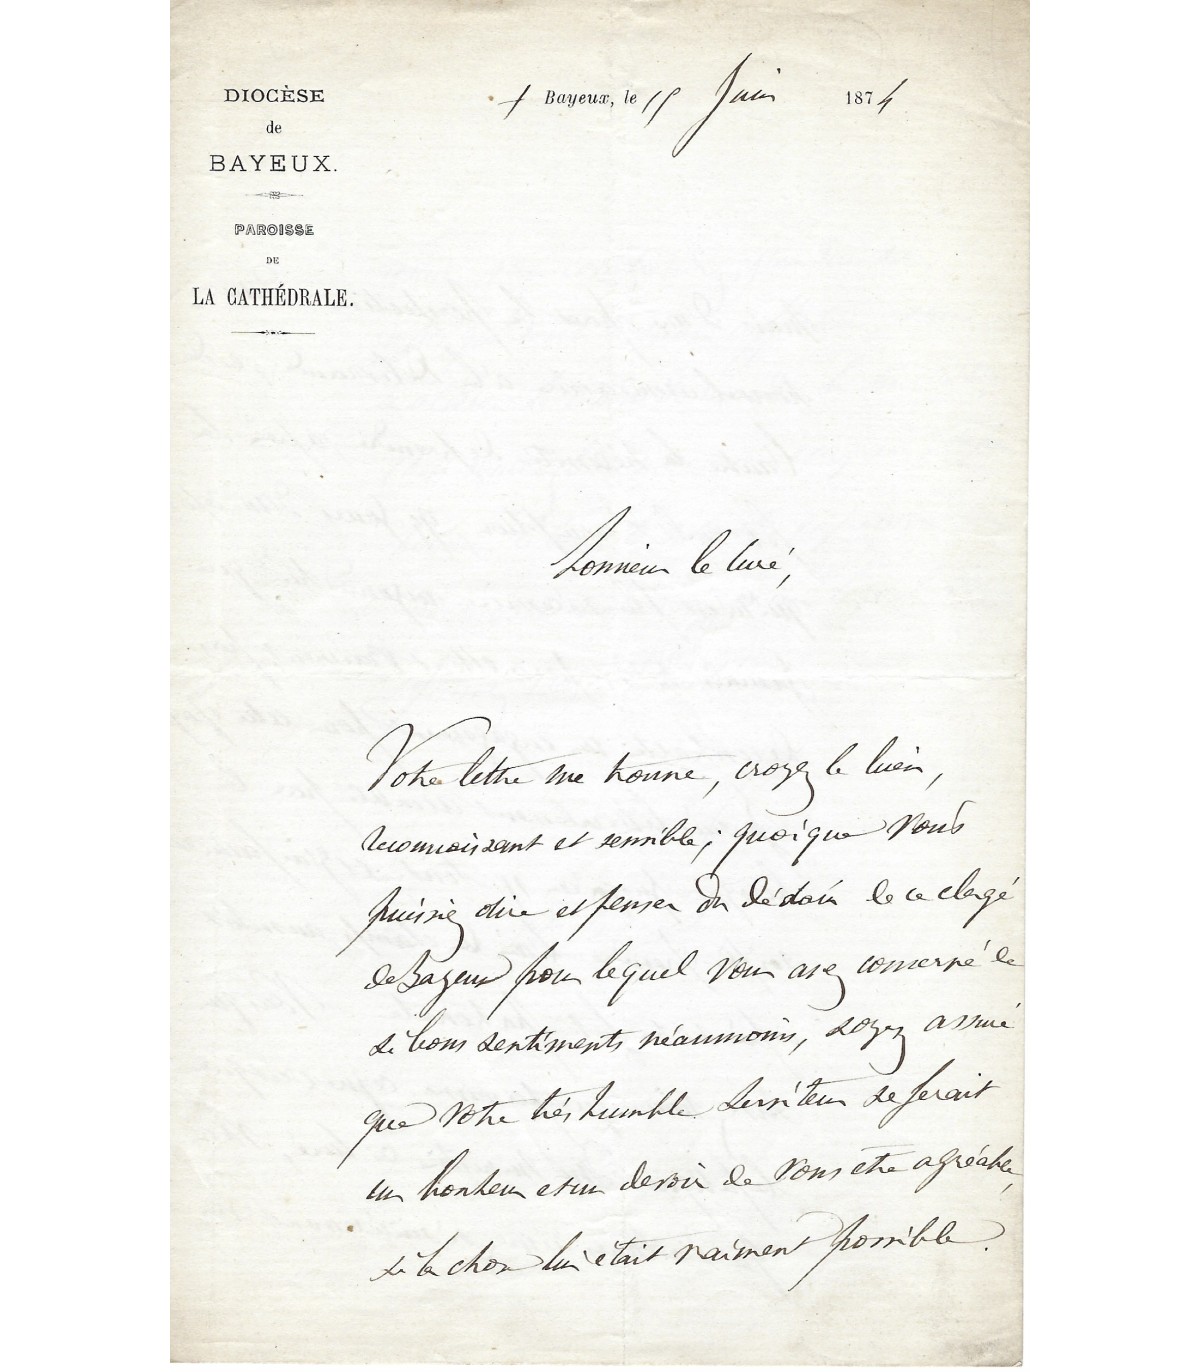 DIOCÈSE
de
BAYEUX.
PAROISSE
DE
LA CATHÉDRALE.
+ Bayeux, le 15 Juin 1874
Monsieur le Curé,
Votre lettre me trouve, croyez le bien,
reconnaissant et sensible; quoique vous
puissiez dire et penser du dédain de ce clergé
de Bayeux pour lequel vous avez conservé de
si bons sentiments néaumoins, soyez assuré
que votre très humble serviteur se ferait
un bonheur et un devoir de vous être agréable,
si la chose lui était vraiment possible.